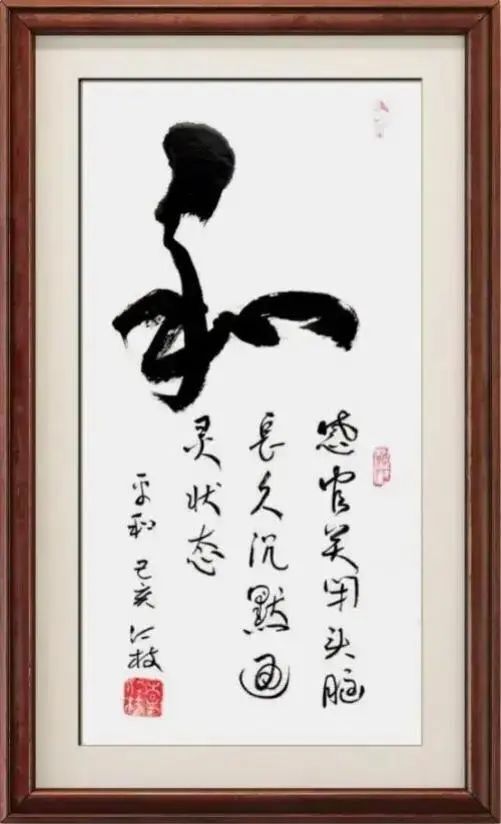 和
感官关闭头脑
長久沉默通
灵状态
平和 己亥